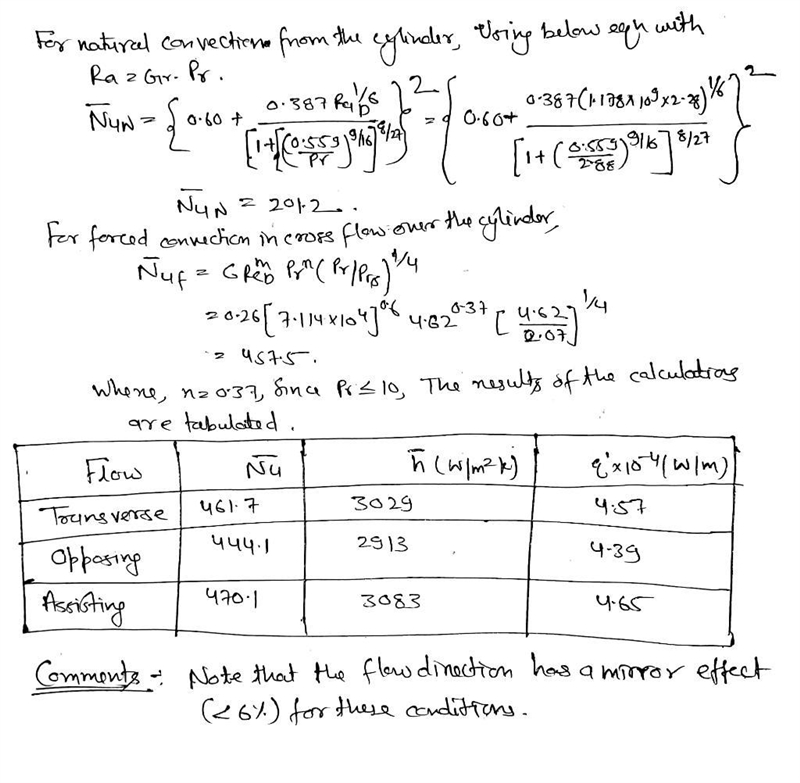 For natural convection from the cylinder, Using below eqn with
Ra = Gr. Pr.
N̄uN = { 0.60 + 0.387 Ra_D^1/6 / [1+(0.559/Pr)^9/16]^8/27 }^2 = { 0.60+ 0.387(1.178×10^9×2.88)^1/6 / [1+(0.559/2.88)^9/16]^8/27 }^2
N̄uN = 201.2.
For forced convection in cross flow over the cylinder,
N̄uf = C Re_D^m Pr^n (Pr/Prs)^1/4
= 0.26[7.114×10^4]^0.6 4.62^0.37 [4.62/2.07]^1/4
= 457.5.
Where, n=0.37, Since Pr ≤ 10, The results of the calculations
are tabulated.
Flow N̄u h̄ (W/m²k) q'×10^-4 (W/m)
Transverse 461.7 3029 4.57
Opposing 444.1 2913 4.39
Assisting 470.1 3083 4.65
Comments :- Note that the flow direction has a mirror effect
(<6%) for these conditions.